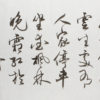 雲生處有
人家停車
坐愛楓林
晚霜紅於